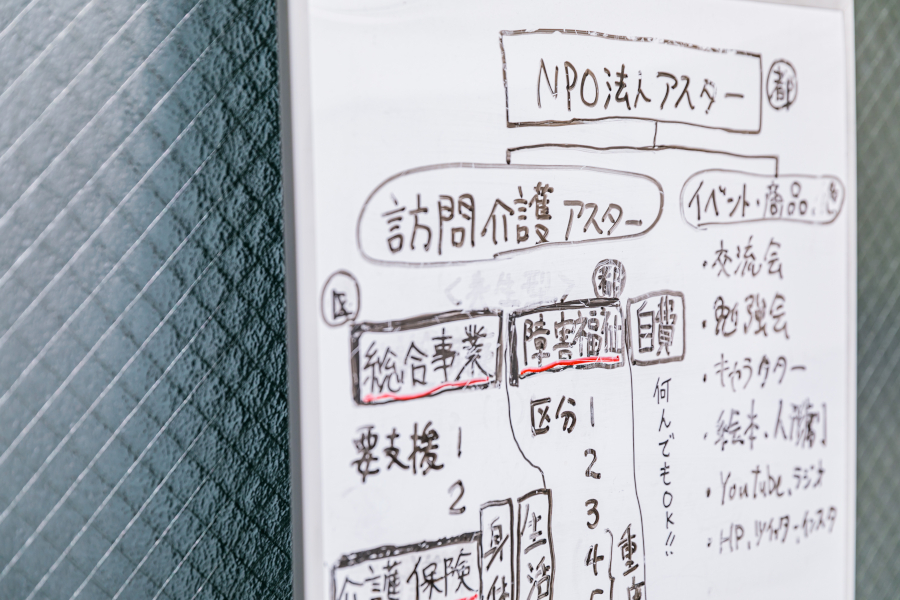 NPO法人アスター 都
訪問介護アスター
イベント・商品
・交流会
・勉強会
・キャラクター
・絵本、人形劇
・Youtube、ラジオ
・HP、ツイッター、インスタ
区
総合事業
要支援1
2
介護保険
身体
生活
都
障害福祉
区分1
2
3
4
5
重度
自費
何んでもOK!!